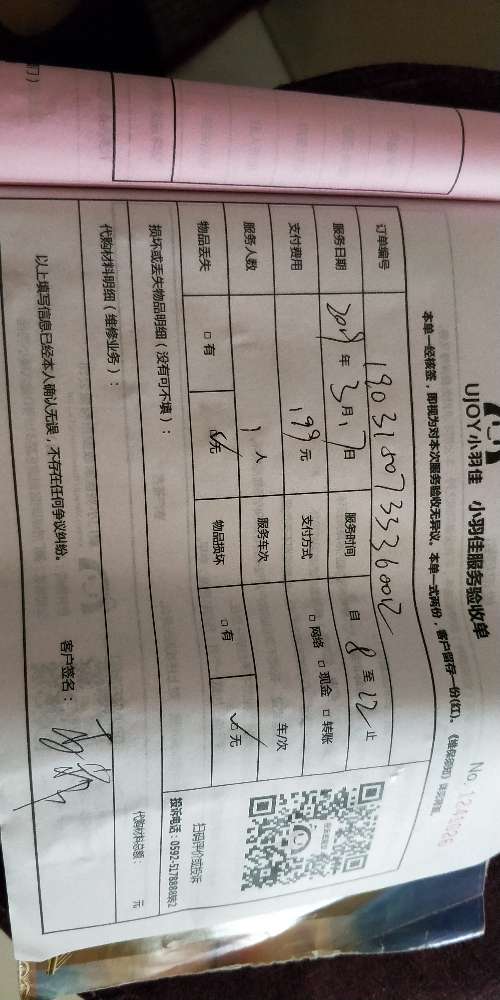 UJOY小羽佳 小羽佳服务验收单
本单一经核签，即视为对本次服务验收无异议。本单一式两份，客户留存一份(红)。
订单编号
服务日期 2019 年 3 月 17 日 服务时间 自 8 至 12 止
支付费用 199 元 支付方式 □ 网络 □ 现金 □ 转账
服务人数 1 人 服务车次 车/次
物品丢失 □ 有 ☑ 无 物品损坏 □ 有 ☑ 无
损坏或丢失物品明细（没有可不填）：
扫码评价或投诉
投诉电话：0592-5178888转2
代购材料明细（维修业务）： 代购材料总额： 元
以上填写信息已经本人确认无误，不存在任何争议纠纷。
客户签名：